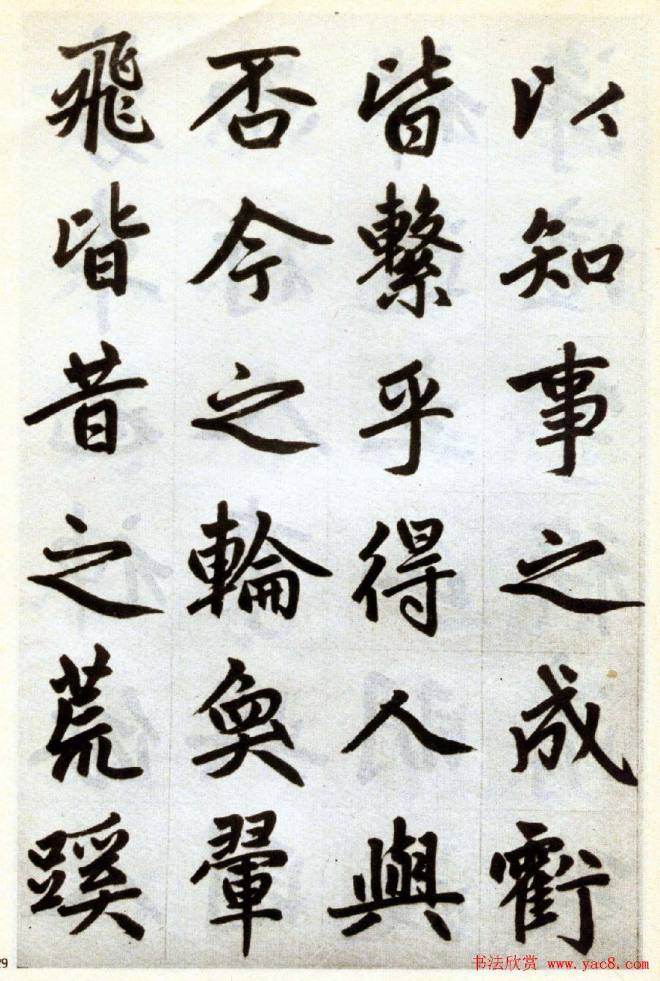 以知事之成虧
皆繫乎得人與
否今之輪奐翬
飛皆昔之荒蹊
29
书法欣赏 www.yac8.com